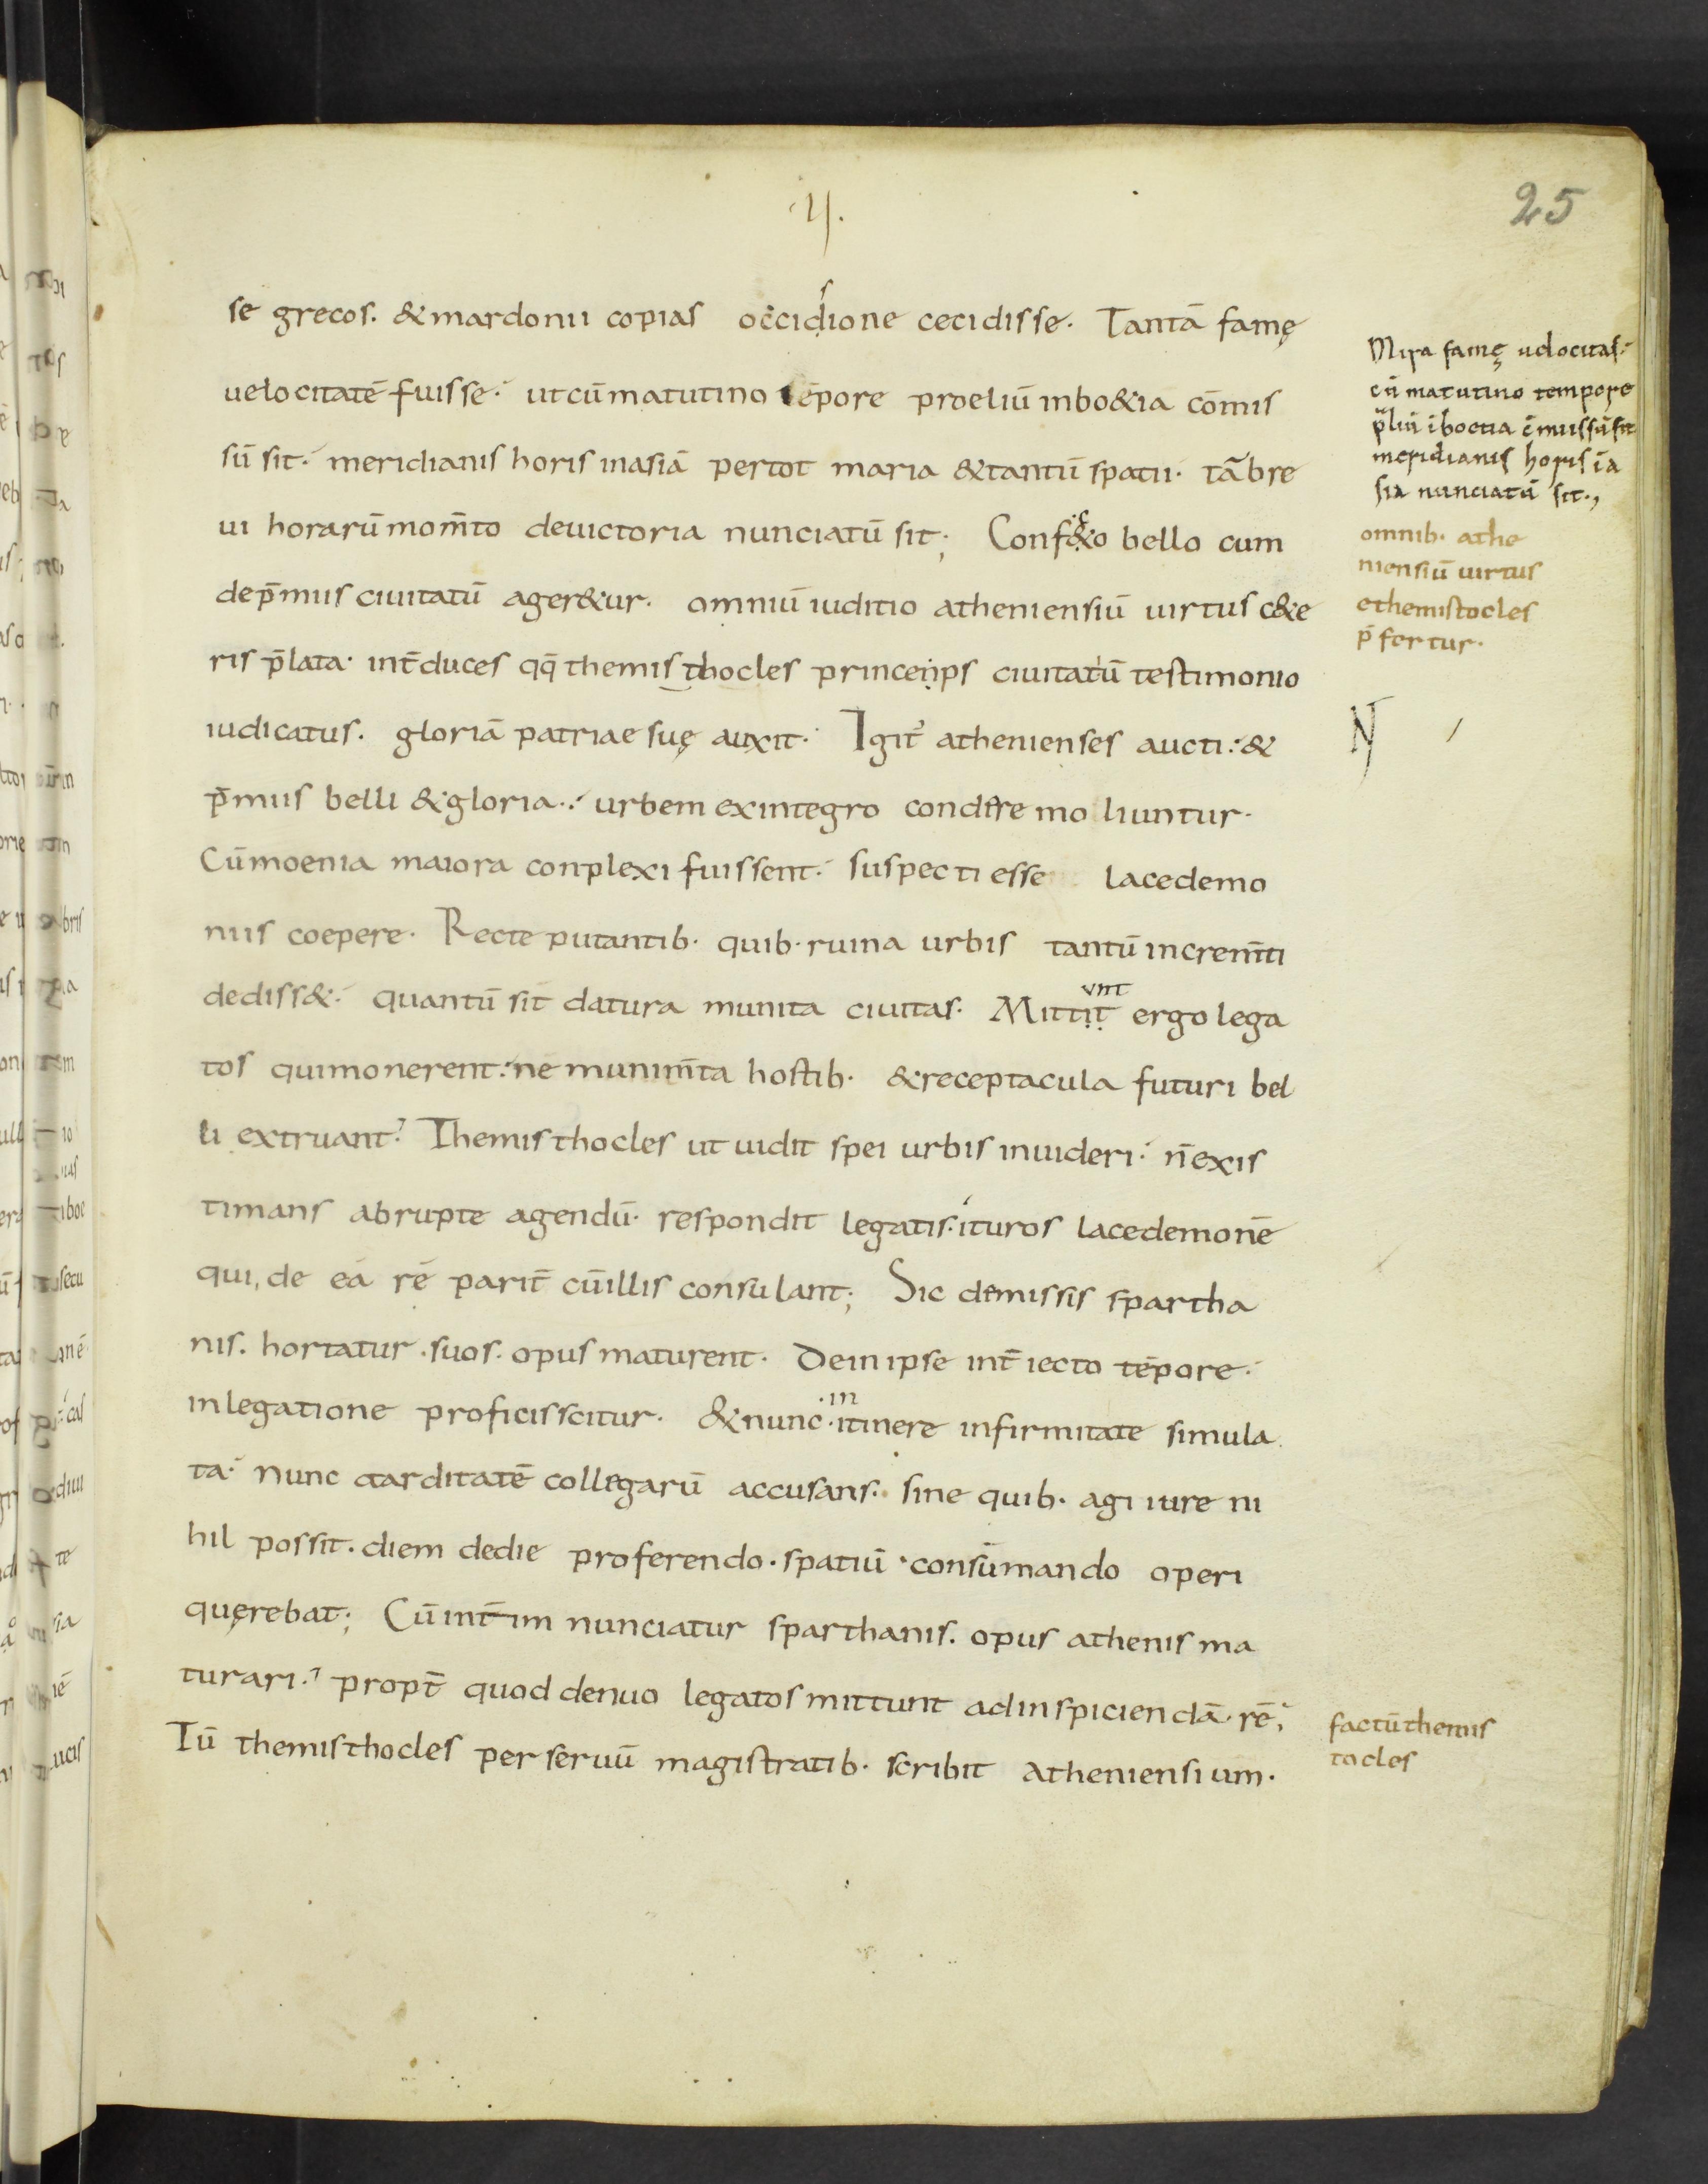 ·II·
25
se grecos. & mardonii copias occidsione cecidisse. Tantā famę
uelocitatē fuisse· ut cū matutino tēpore proeliū in bo&ia cōmis
sū sit· meridianis horis in asiā per tot maria & tantū spatii· tā bre
ui horarū mom̄to de uictoria nunciatū sit; Conf&co bello cum
de p̄miis ciuitatū ager&ur. omniū iuditio atheniensiū uirtus c&e
ris p̄lata· int̄ duces qq̄ themisthocles princeps ciuitatū testimonio
iudicatus. gloriā patriae suę auxit· Igit᷑ athenienses aucti· &
p̄miis belli & gloria· urbem ex integro condere moliuntur·
Cū moenia maiora conplexi fuissent· suspecti esse lacedemo
niis coepere· Recte putantib· quib· ruina urbis tantū increm̄ti
dediss&· quantū sit datura munita ciuitas· Mittit unt ergo lega
tos qui monerent· ne munim̄ta hostib· & receptacula futuri bel
li extruant· Themisthocles ut uidit spei urbis inuideri· n̄ exis
timans abrupte agendū· respondit legatis· ituros lacedemonē
qui, de eā rē parit̄ cū illis consulant; Sic dimissis spartha
nis. hortatur· suos· opus maturent· Dein ipse int̄iecto tēpore·
in legatione proficisscitur· & nunc· in itinere infirmitate simula
ta· nunc tarditatē collegarū accusans· sine quib· agi iure ni
hil possit· diem de die proferendo· spatiū· consūmando operi
quęrebat; Cū int̄im nunciatur sparthanis· opus athenis ma
turari· propt̄ quod denuo legatos mittunt ad inspiciendā rē;
Tū themisthocles per seruū magistratib· scribit atheniensium·
Mira famę uelocitas·
cū matutino tempore
p̄liū ī boetia cm̄issū sit
meridianis horis ī a
sia nunciatū sit·,
omnib· athe
niensiū uirtus
ethemistocles
p̄ fertur·
N
factū themis
tocles